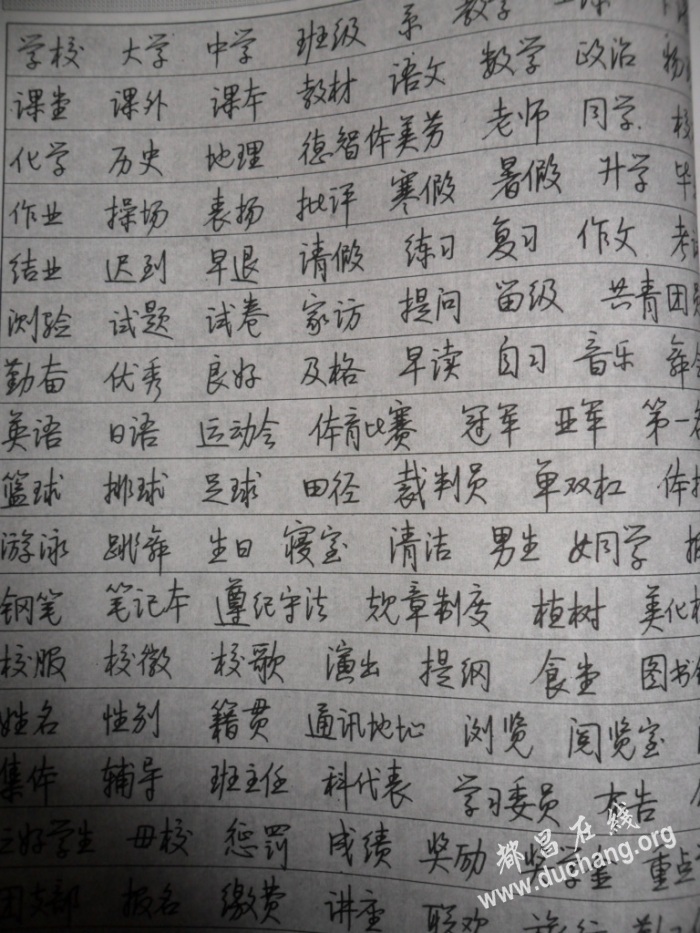 学校 大学 中学 班级 系 教学
课堂 课外 课本 教材 语文 数学 政治
化学 历史 地理 德智体美劳 老师 同学
作业 操场 表扬 批评 寒假 暑假 升学 毕
结业 迟到 早退 请假 练习 复习 作文 考试
测验 试题 试卷 家访 提问 留级 共青团员
勤奋 优秀 良好 及格 早读 自习 音乐 舞会
英语 日语 运动会 体育比赛 冠军 亚军 第一名
篮球 排球 足球 田径 裁判员 单双杠 体操
游泳 跳舞 生日 寝室 清洁 男生 女同学
钢笔 笔记本 遵纪守法 规章制度 植树 美化校
校服 校徽 校歌 演出 提纲 食堂 图书馆
姓名 性别 籍贯 通讯地址 浏览 阅览室
集体 辅导 班主任 科代表 学习委员 布告
三好学生 母校 惩罚 成绩 奖励 奖学金 重点
团支部 报名 缴费 讲座 联欢 旅行
都昌在线
www.duchang.org